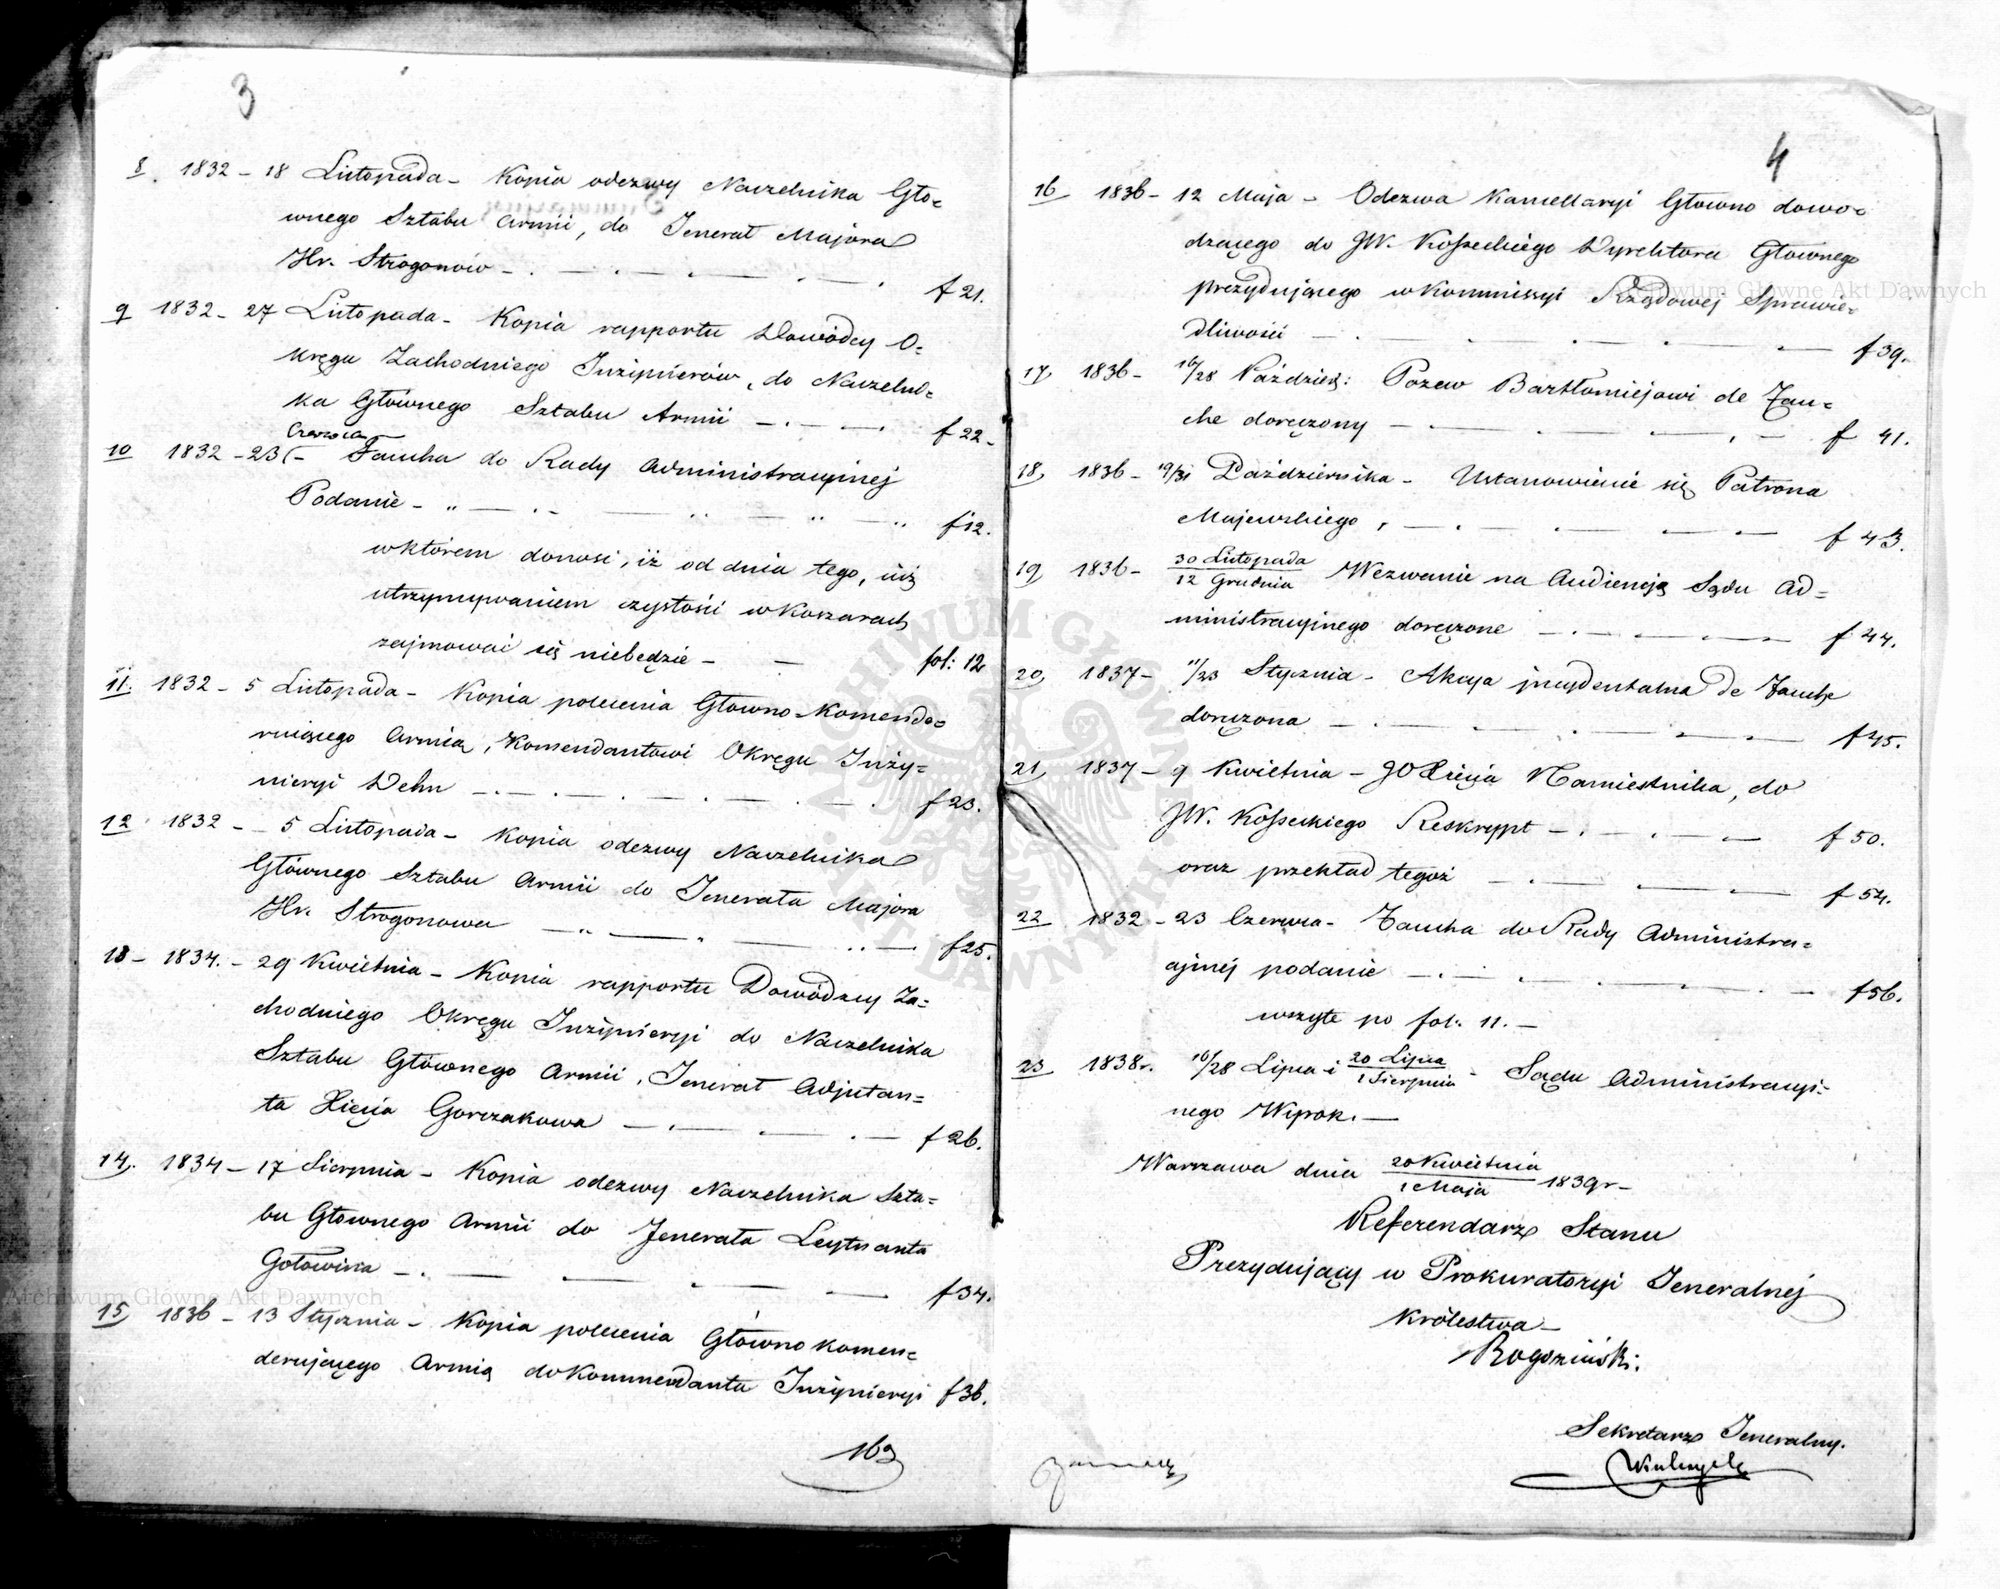 3
8. 1832 – 18 Listopada – Kopia odezwy Naczelnika Gło=
wnego Sztabu Armii, do Jenerał Majora
Hr. Strogonow – f 21.
9 1832 – 27 Listopada – Kopia rapportu Dowódcy O=
kręgu Zachodniego Inżinierów, do Naczelni=
ka Głównego Sztabu Armii – f 22 –
Czerwca
10 1832 – 23 – Taucha do Rady Administracyjnej
Podanie – f 12.
w którem donosi, iż od dnia tego, już
utrzymywaniem czystości w Koszarach
zajmować się niebędzie – fol: 12
11. 1832 – 5 Listopada – Kopia polecenia Głowno-Komende=
ruiącego Armią, Komendantowi Okręgu Inży=
nieryi Dehn – f 23.
12 1832 – 5 Listopada – Kopia odezwy Naczelnika
Głównego Sztabu Armii do Jenerała Majora
Hr. Strogonowa – f 25.
13 – 1834. – 29 Kwietnia – Kopia rapportu Dowódzcy Za=
chodniego Okręgu Inżynieryi do Naczelnika
Sztabu Głównego Armii, Jenerał Adjutan=
ta Xięcia Gorczakowa – f 26.
14. 1834 – 17 Sierpnia – Kopia odezwy Naczelnika Szta=
bu Głownego Armii do Jenerała Leytnanta
Gołowina – f 34.
15 1836 – 13 Stycznia – Kopia polecenia Główno komen=
derującego Armią do Kommendanta Inżynieryi f 36.
163
4
16 1836 – 12 Maja – Odezwa Kancellaryi Głowno dowo=
dzącego do JW. Kosseckiego Dyrektora Głownego
prezydującego w Kommissyi Rządowej Sprawie=
dliwości – f 39.
17 1836 – 16/28 Paździer: Pozew Bartłomiejowi de Tau=
che doręczony – f 41.
18, 1836 – 19/31 Października – Ustanowienie się Patrona
Majewskiego, – f 43.
19 1836 – 30 Listopada / 12 Grudnia Wezwanie na Audiencją Sądu Ad=
ministracyjnego doręczone – f 44.
20, 1837 – 11/23 Stycznia – Akcya incydentalna de Tauche
doręczona – f 45.
21, 1837 – 9 Kwietnia – JO Xięcia Namiestnika, do
JW. Kosseckiego Reskrypt – f 50.
oraz przekład tegoż – f 54.
22 1832 – 23 Czerwca – Taucha do Rady Administra=
cyjnej podanie – f 56.
wszyte po fol: 11. –
23 1838 r. 16/28 Lipca i 20 Lipca / 1 Sierpnia – Sądu Administracyj=
nego Wyrok. –
Warszawa dnia 20 Kwietnia / 1 Maja 1839 r –
Referendarz Stanu
Prezydujący w Prokuratoryi Jeneralnej
Królestwa –
Rogoziński.
Sekretarz Jeneralny.
Archiwum Główne Akt Dawnych
Archiwum Główne Akt Dawnych
ARCHIWUM GŁÓWNE AKT DAWNYCH